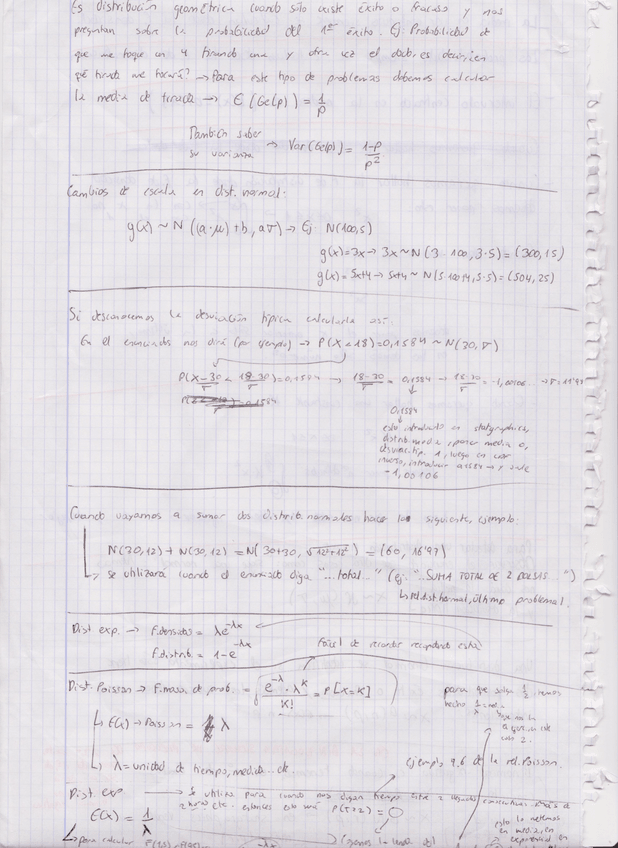 Es distribución geométrica cuando sólo existe éxito o fracaso y nos
preguntan sobre la probabilidad del 1er éxito. Ej. Probabilidad de
que me toque un 4 tirando una y otra vez el dado, es decir, ¿en
qué tirada me tocará? → Para este tipo de problemas debemos calcular
la media de tirada → E(Ge(p)) = 1/p
También saber
su varianza → Var(Ge(p)) = 1-p/p²
Cambios de escala en dist. normal.
g(x) ~ N((a·μ)+b, aσ) → Ej N(100,5)
g(x)=3x → 3x ~ N(3·100, 3·5) = (300,15)
g(x)=5x+4 → 5x+4 ~ N(5·100+4, 5·5) = (504,25)
Si desconocemos la desviación típica calcularla así.
En el enunciados nos dirá (por ejemplo) → P(X<18)=0,1584 ~ N(30,σ)
P(X-30/σ < 18-30/σ)=0,1584 → 18-30/σ = 0,1584 → 18-30/σ = -1,00106...
0,1584
esto introducido en statgraphics,
distrib. media, poner media 0,
desviac. tip. 1, luego en
inverso, introducir 0,1584 y sale
-1,00106
Cuando vayamos a sumar dos distrib. normales hacer lo siguiente, ejemplo:
N(30,12) + N(30,12) = N(30+30, √12²+12²) = (60, 16'97)
→ se utilizará cuando el enunciado diga "...total..." (ej. "...SUMA TOTAL DE 2 BOLSAS...")
→ rel. dist. normal, último problema
Dist exp. → F.densidad = λe^-λx
F.distrib. = 1-e^-λx
Fácil de recordar recordando esta
Dist. Poisson → F. masa de prob. = e^-λ · λ^k / K! = P[X=K]
para que salga 1/2 hemos
hecho 1/λ
E(x) → Poisson = λ
→ λ = unidad de tiempo, medida... etc.
ejemplo 9.6 de la rel. Poisson.
Dist. exp → Se utiliza para cuando nos digan tiempo entre 2
E(x) = 1/λ
2 horas etc. entonces esto será P(T>2) =
esto lo metemos
en media, en
exponencial en
→ para calcular